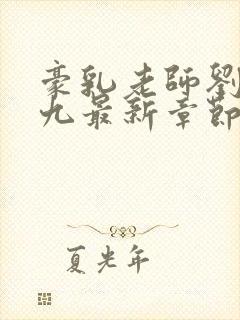 豪乳老師劉
九最新章節
夏光年